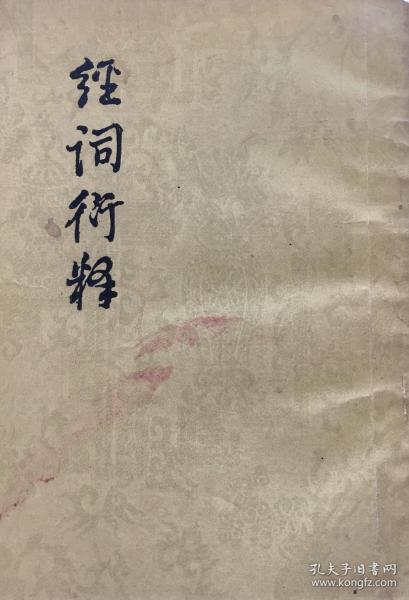 經词衍释
孔夫子旧书网
www.kongfz.com